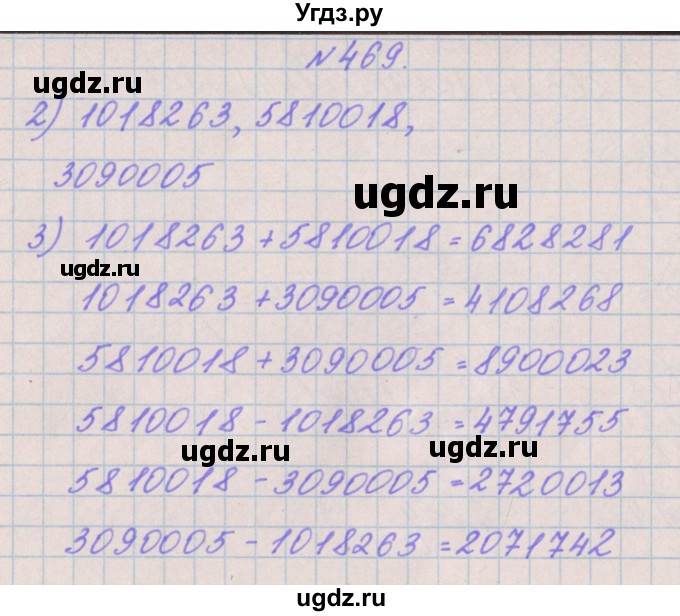 Угдз.ру
№469.
ugdz.ru
2) 1018263, 5810018,
3090005
ugdz.ru
3) 1018263 + 5810018 = 6828281
ugdz.ru
1018263 + 3090005 = 4108268
5810018 + 3090005 = 8900023
5810018 - 1018263 = 4791755
ugdz.ru
ugdz.ru
5810018 - 3090005 = 2720013
3090005 - 1018263 = 2071742
ugdz.ru